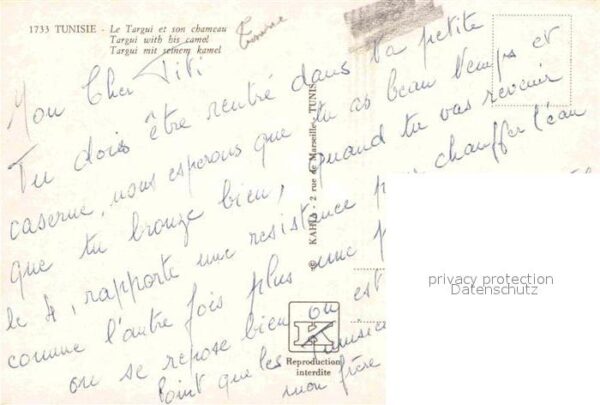 1733 TUNISIE - Le Targui et son chameau
Targui with his camol
Targui mit seinem kamel
Mon Cher Titi
Tu dois être rentré dans ta petite
caserne, nous esperons que tu as beau temps et
que tu bronze bien, quand tu vas revenir
le 4, rapporte une resistance pour chauffer l'eau
comme l'autre fois plus une
on se repose bien on est
point que les
mon frère
© KAHIA - 2 rue de Marseille - TUNIS
K
Reproduction
interdite
privacy protection
Datenschutz